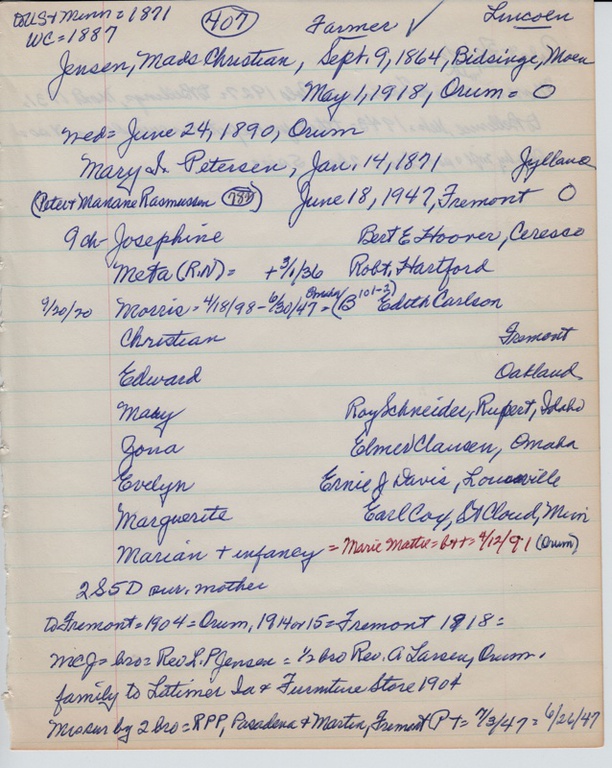 to US + Minn = 1871 (407) Farmer ✓ Lincoln
WC = 1887
Jensen, Mads Christian, Sept. 9, 1864, Bidsinge, Moen
May 1, 1918, Orum = O
wed = June 24, 1890, Orum
Mary I. Petersen, Jan. 14, 1871 Jylland
(Peter + Mariane Rasmussen 789) June 18, 1947, Fremont O
9 ch - Josephine Bert E Hoover, Ceresco
Meta (R.N) = + 3/1/36 Robt. Hartford
9/20/20 Morris = 4/18/98 - 6/30/47 Omaha = (B 101-2) Edith Carlson
Christian Fremont
Edward Oakland
Mary Roy Schneider, Rupert, Idaho
Zona Elmer Clausen, Omaha
Evelyn Ernie J Davis, Louisville
Marguerite Earl Cox, St Cloud, Minn
Marian + infancy = Marie Mattie = b + + = 4/12/91 (Orum)
2S 5D sur. mother
to Fremont = 1904 = Orum, 1914 or 15 = Fremont 1918 =
MCJ = bro = Rev L.P Jensen = 1/2 bro Rev. A Larsen, Orum.
family to Latimer Ia + Furniture Store 1904
Mrs sur by 2 bro = RPP, Pasadena + Martin, Fremont PT = 7/3/47 = 6/26/47